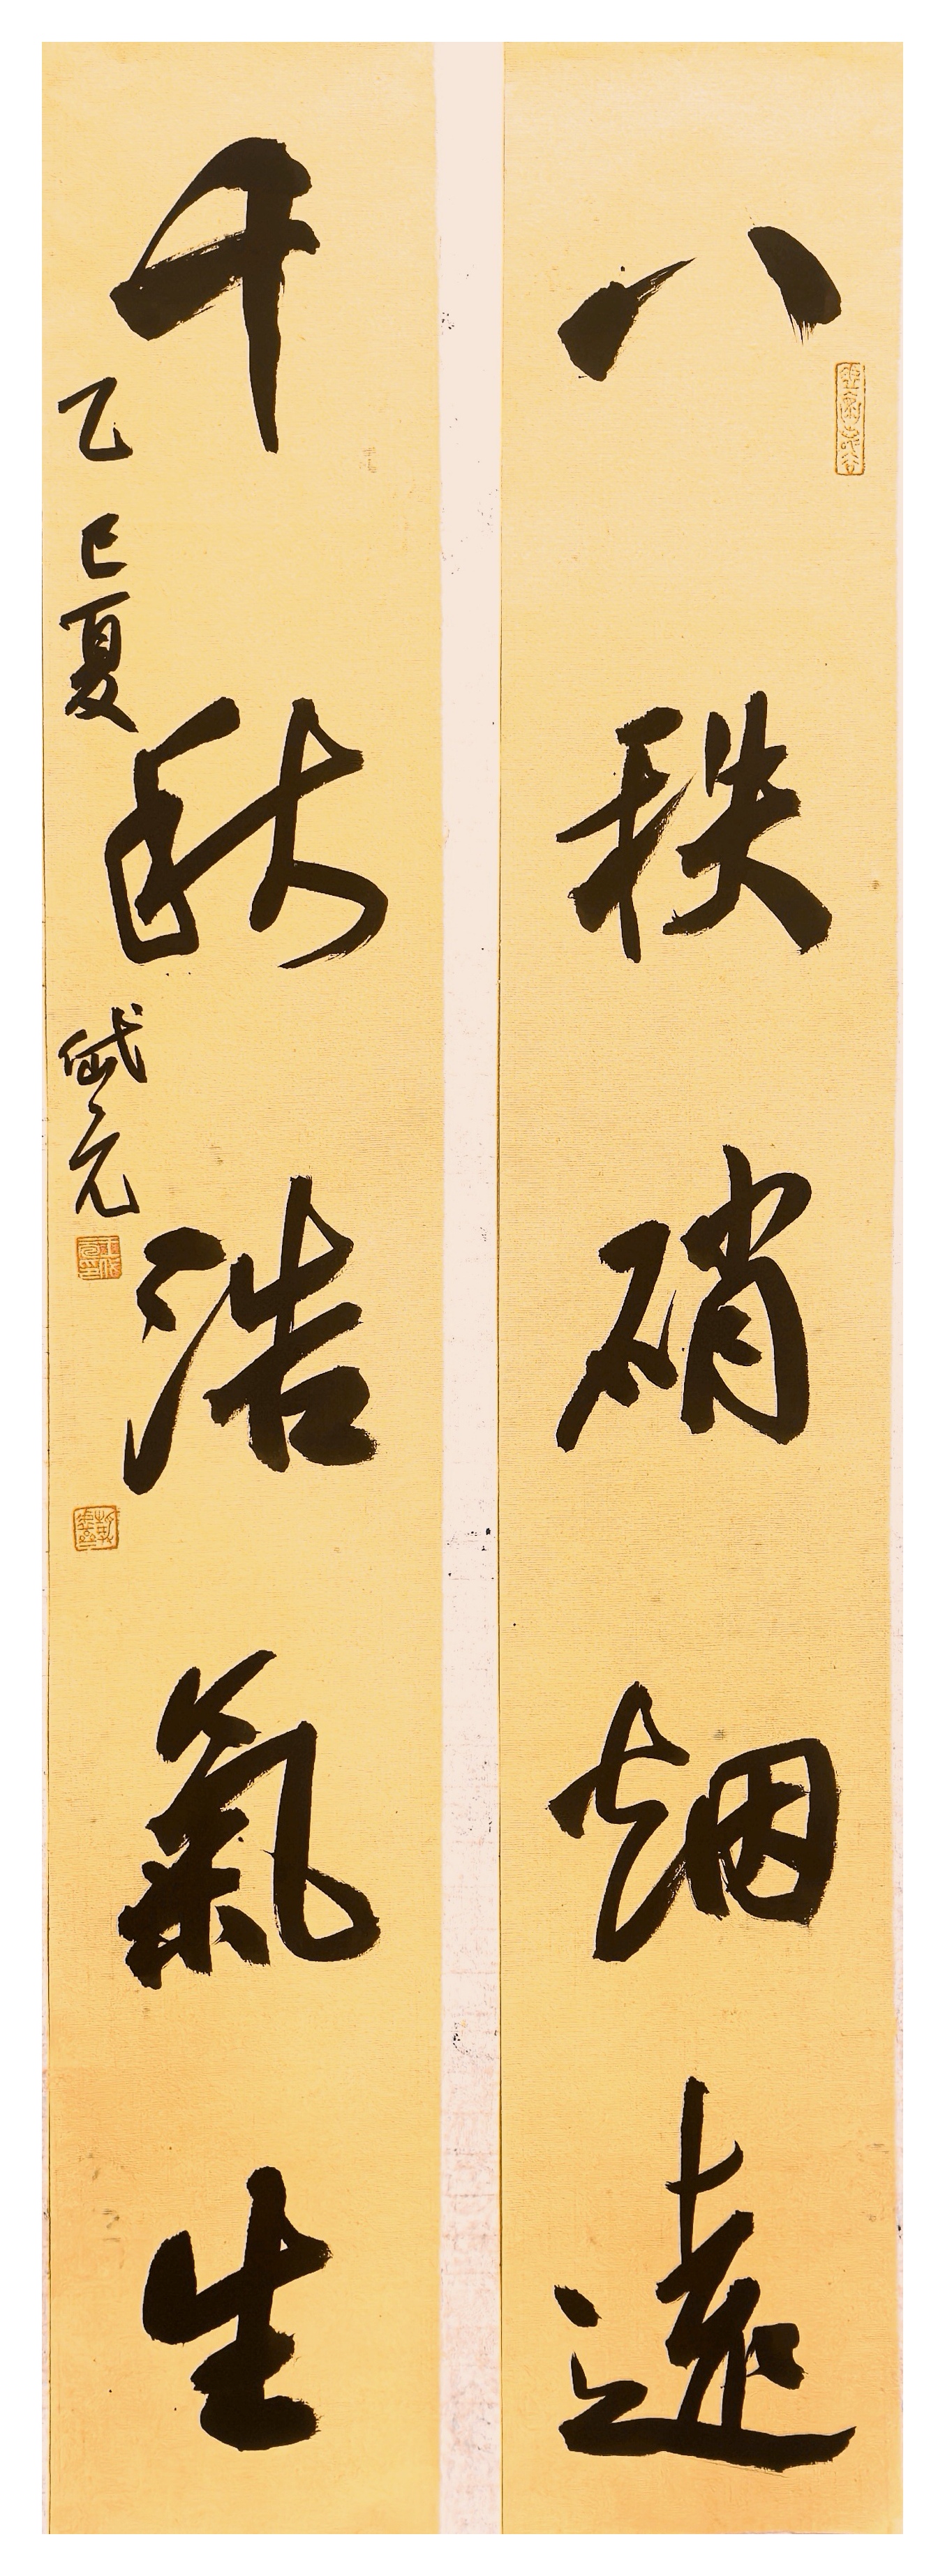 八秩硝烟遠
千秋浩氣生
乙巳夏
岱元